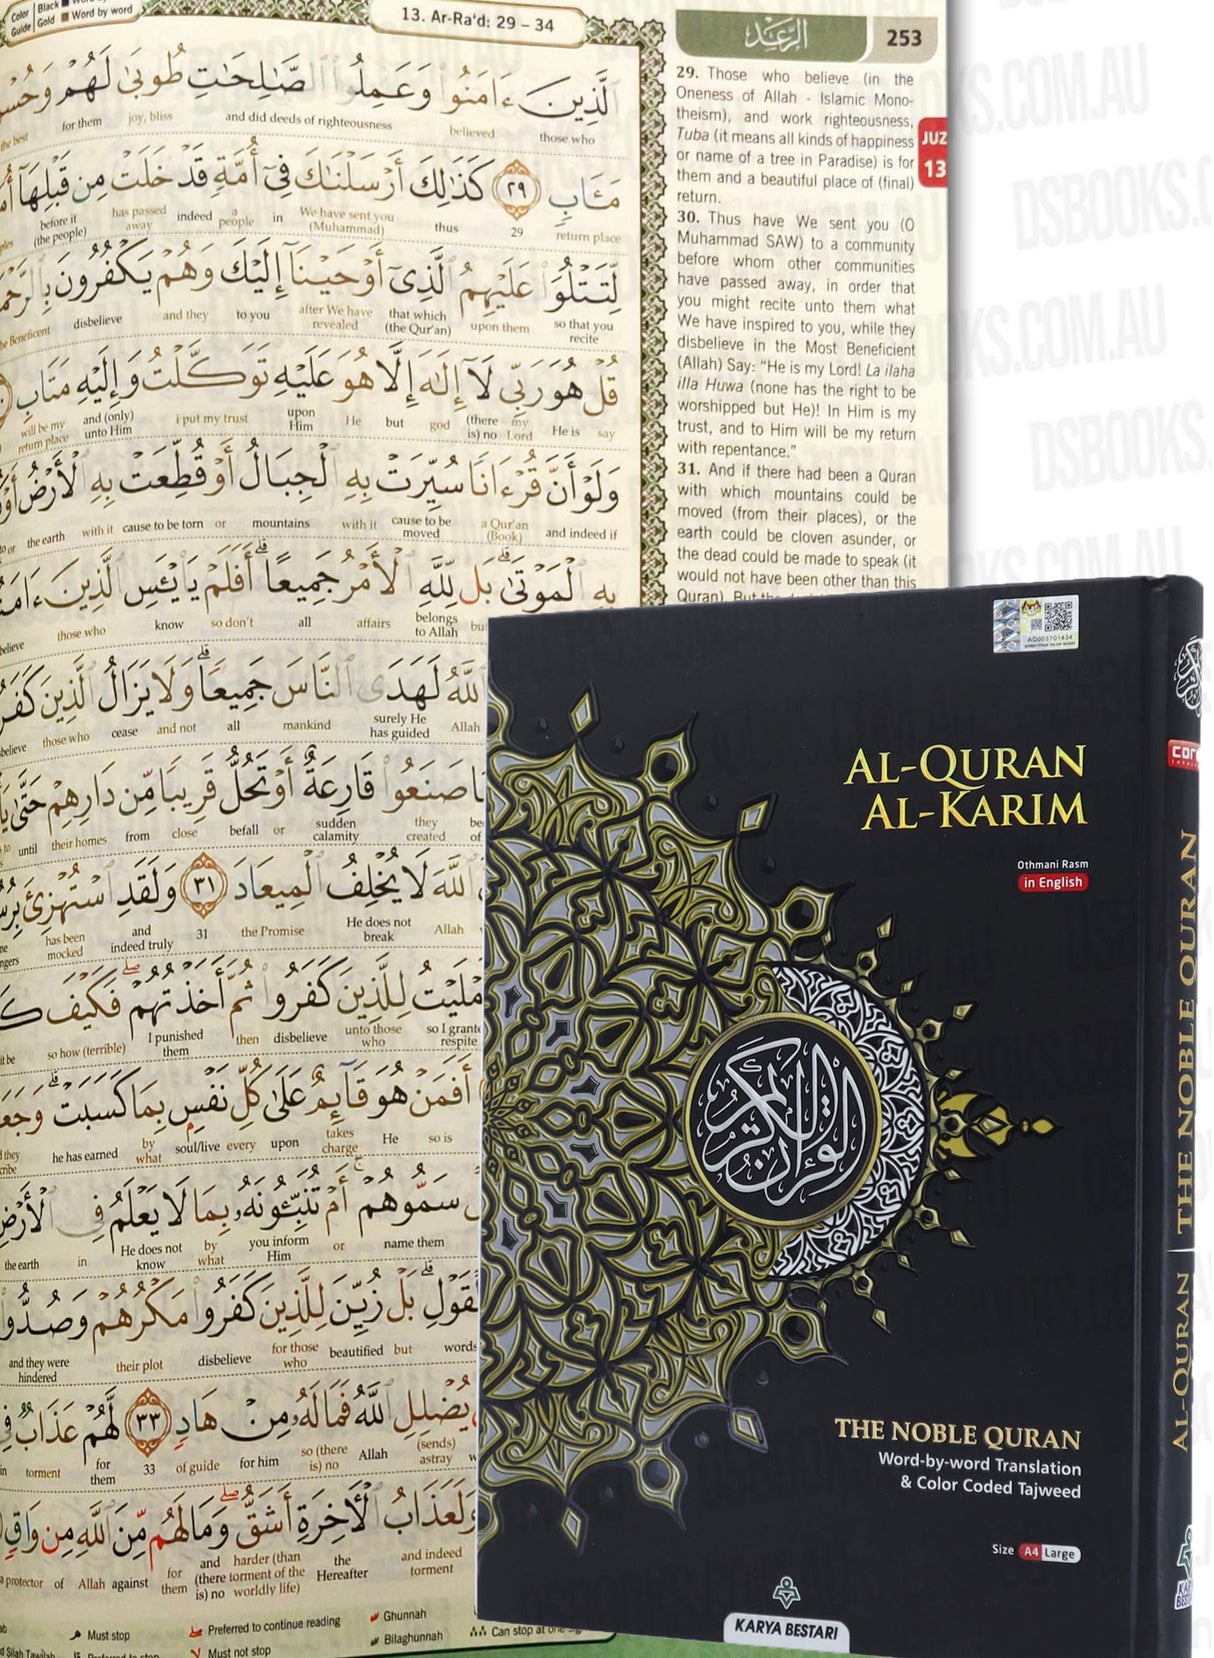 Color Guide
Black
Gold
Word by word
13. Ar-Ra'd: 29 – 34
الرَّعْد
253
JUZ
13
ٱلَّذِينَ ءَامَنُوا۟ وَعَمِلُوا۟ ٱلصَّـٰلِحَـٰتِ طُوبَىٰ لَهُمْ
for them joy, bliss and did deeds of righteousness believed those who
مَـَٔابٍ ٢٩ كَذَٰلِكَ أَرْسَلْنَـٰكَ فِىٓ أُمَّةٍ قَدْ خَلَتْ مِن قَبْلِهَآ
before it (the people) has passed away indeed a people in We have sent you (Muhammad) thus 29 return place
لِّتَتْلُوَا۟ عَلَيْهِمُ ٱلَّذِىٓ أَوْحَيْنَآ إِلَيْكَ وَهُمْ يَكْفُرُونَ
Beneficent disbelieve and they to you after We have revealed that which (the Qur'an) upon them so that you recite
قُلْ هُوَ رَبِّى لَآ إِلَـٰهَ إِلَّا هُوَ عَلَيْهِ تَوَكَّلْتُ وَإِلَيْهِ مَتَابِ
will be my return place and (only) unto Him i put my trust upon Him He but god (there is) no my Lord He is say
وَلَوْ أَنَّ قُرْءَانًا سُيِّرَتْ بِهِ ٱلْجِبَالُ أَوْ قُطِّعَتْ بِهِ ٱلْأَرْضُ
or the earth with it cause to be torn or mountains with it cause to be moved a Qur'an (Book) and indeed if
بِهِ ٱلْمَوْتَىٰ ۗ بَل لِّلَّهِ ٱلْأَمْرُ جَمِيعًا ۗ أَفَلَمْ يَا۟يْـَٔسِ ٱلَّذِينَ
believe those who know so don't all affairs belongs to Allah
ٱللَّهُ لَهَدَى ٱلنَّاسَ جَمِيعًا ۗ وَلَا يَزَالُ ٱلَّذِينَ
those who cease and not all mankind surely He has guided Allah
صَنَعُوا۟ قَارِعَةٌ أَوْ تَحُلُّ قَرِيبًا مِّن دَارِهِمْ حَتَّىٰ
until their homes from close befall or sudden calamity they created
ٱللَّهَ لَا يُخْلِفُ ٱلْمِيعَادَ ٣١ وَلَقَدِ ٱسْتُهْزِئَ
has been mocked and indeed truly 31 the Promise He does not break Allah
لِلَّذِينَ كَفَرُوا۟ ثُمَّ أَخَذْتُهُمْ ۖ فَكَيْفَ
it be so how (terrible) I punished them then disbelieve unto those who so I respite
أَفَمَنْ هُوَ قَآئِمٌ عَلَىٰ كُلِّ نَفْسٍ بِمَا كَسَبَتْ ۗ
they he has earned by what soul/live every upon takes charge He so is
سَمُّوهُمْ ۚ أَمْ تُنَبِّـُٔونَهُۥ بِمَا لَا يَعْلَمُ فِى ٱلْأَرْضِ
the earth in He does not know by what you inform Him or name them
بَلْ زُيِّنَ لِلَّذِينَ كَفَرُوا۟ مَكْرُهُمْ وَصُدُّوا۟
and they were hindered their plot disbelieve for those who beautified but words
يُضْلِلِ ٱللَّهُ فَمَا لَهُۥ مِنْ هَادٍ ٣٣ لَّهُمْ عَذَابٌ
in torment for them 33 of guide for him so (there is) no Allah (sends) astray
وَلَعَذَابُ ٱلْـَٔاخِرَةِ أَشَقُّ ۖ وَمَا لَهُم مِّنَ ٱللَّهِ مِن وَاقٍ
protector of Allah against for them and (there is) no harder (than torment of the worldly life) the Hereafter and indeed torment
Must stop
Preferred to continue reading
Must not stop
Ghunnah
Bilaghunnah
Can stop at one
29. Those who believe (in the
Oneness of Allah - Islamic Mono-
theism), and work righteousness,
Tuba (it means all kinds of happiness
or name of a tree in Paradise) is for
them and a beautiful place of (final)
return.
30. Thus have We sent you (O
Muhammad SAW) to a community
before whom other communities
have passed away, in order that
you might recite unto them what
We have inspired to you, while they
disbelieve in the Most Beneficient
(Allah) Say: "He is my Lord! La ilaha
illa Huwa (none has the right to be
worshipped but He)! In Him is my
trust, and to Him will be my return
with repentance."
31. And if there had been a Quran
with which mountains could be
moved (from their places), or the
earth could be cloven asunder, or
the dead could be made to speak (it
would not have been other than this
Quran)
AQ003701434
AL-QURAN
AL-KARIM
Othmani Rasm
in English
القرآن الكريم
THE NOBLE QURAN
Word-by-word Translation
& Color Coded Tajweed
Size A4 Large
KARYA BESTARI
AL-QURAN THE NOBLE QURAN
DSBOOKS.COM.AU